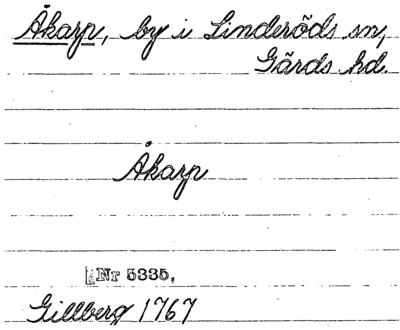 Åkarp, by i Linderöds sn,
Gärds hd.
Åkarp
Nr 5335.
Gillberg 1767